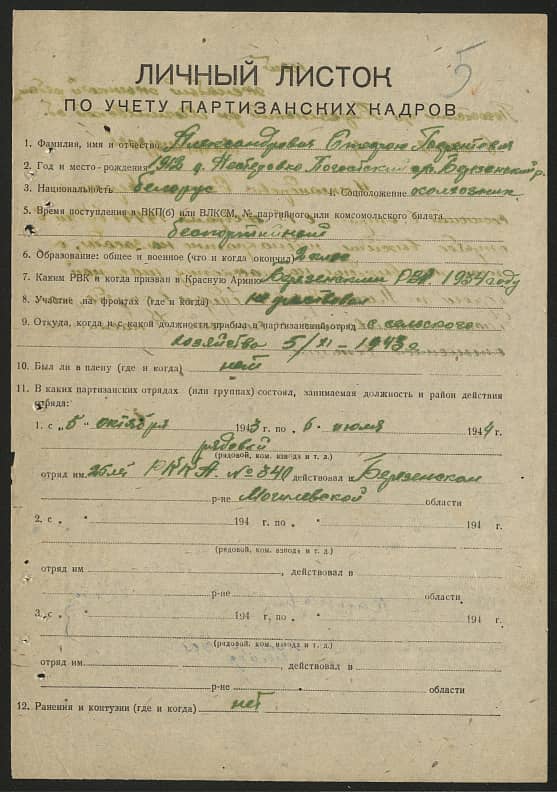 5
ЛИЧНЫЙ ЛИСТОК
ПО УЧЕТУ ПАРТИЗАНСКИХ КАДРОВ
1. Фамилия, имя и отчество Александрович
2. Год и место рождения 1912 д. Погостский с/с Березенский р.
3. Национальность белорус 4. Соцположение колхозник
5. Время поступления в ВКП(б) или ВЛКСМ, № партийного или комсомольского билета
беспартийный
6. Образование: общее и военное (что и когда окончил) 2 клас
7. Каким РВК и когда призван в Красную Армию Березенским РВК 1934 году
8. Участие на фронтах (где и когда) не участвовал
9. Откуда, когда и с какой должности прибыл в партизанский отряд с сельского
хозяйства 5/XI – 1943 г
10. Был ли в плену (где и когда) нет
11. В каких партизанских отрядах (или группах) состоял, занимаемая должность и район действия
отряда:
1. с „5“ октября 1943 г. по „6“ июля 1944 г.
рядовой
(рядовой, ком. взвода и т. д.)
отряд им 25 лет РККА № 340 действовал в Березенском
р-не Могилевской области
2. с „ “ 194 г. по „ “ 194 г.
(рядовой, ком. взвода и т. д.)
отряд им , действовал в
р-не области
3. с „ “ 194 г. по „ “ 194 г.
(рядовой, ком. взвода и т. д.)
отряд им. , действовал в
р-не области
12. Ранения и контузии (где и когда) нет